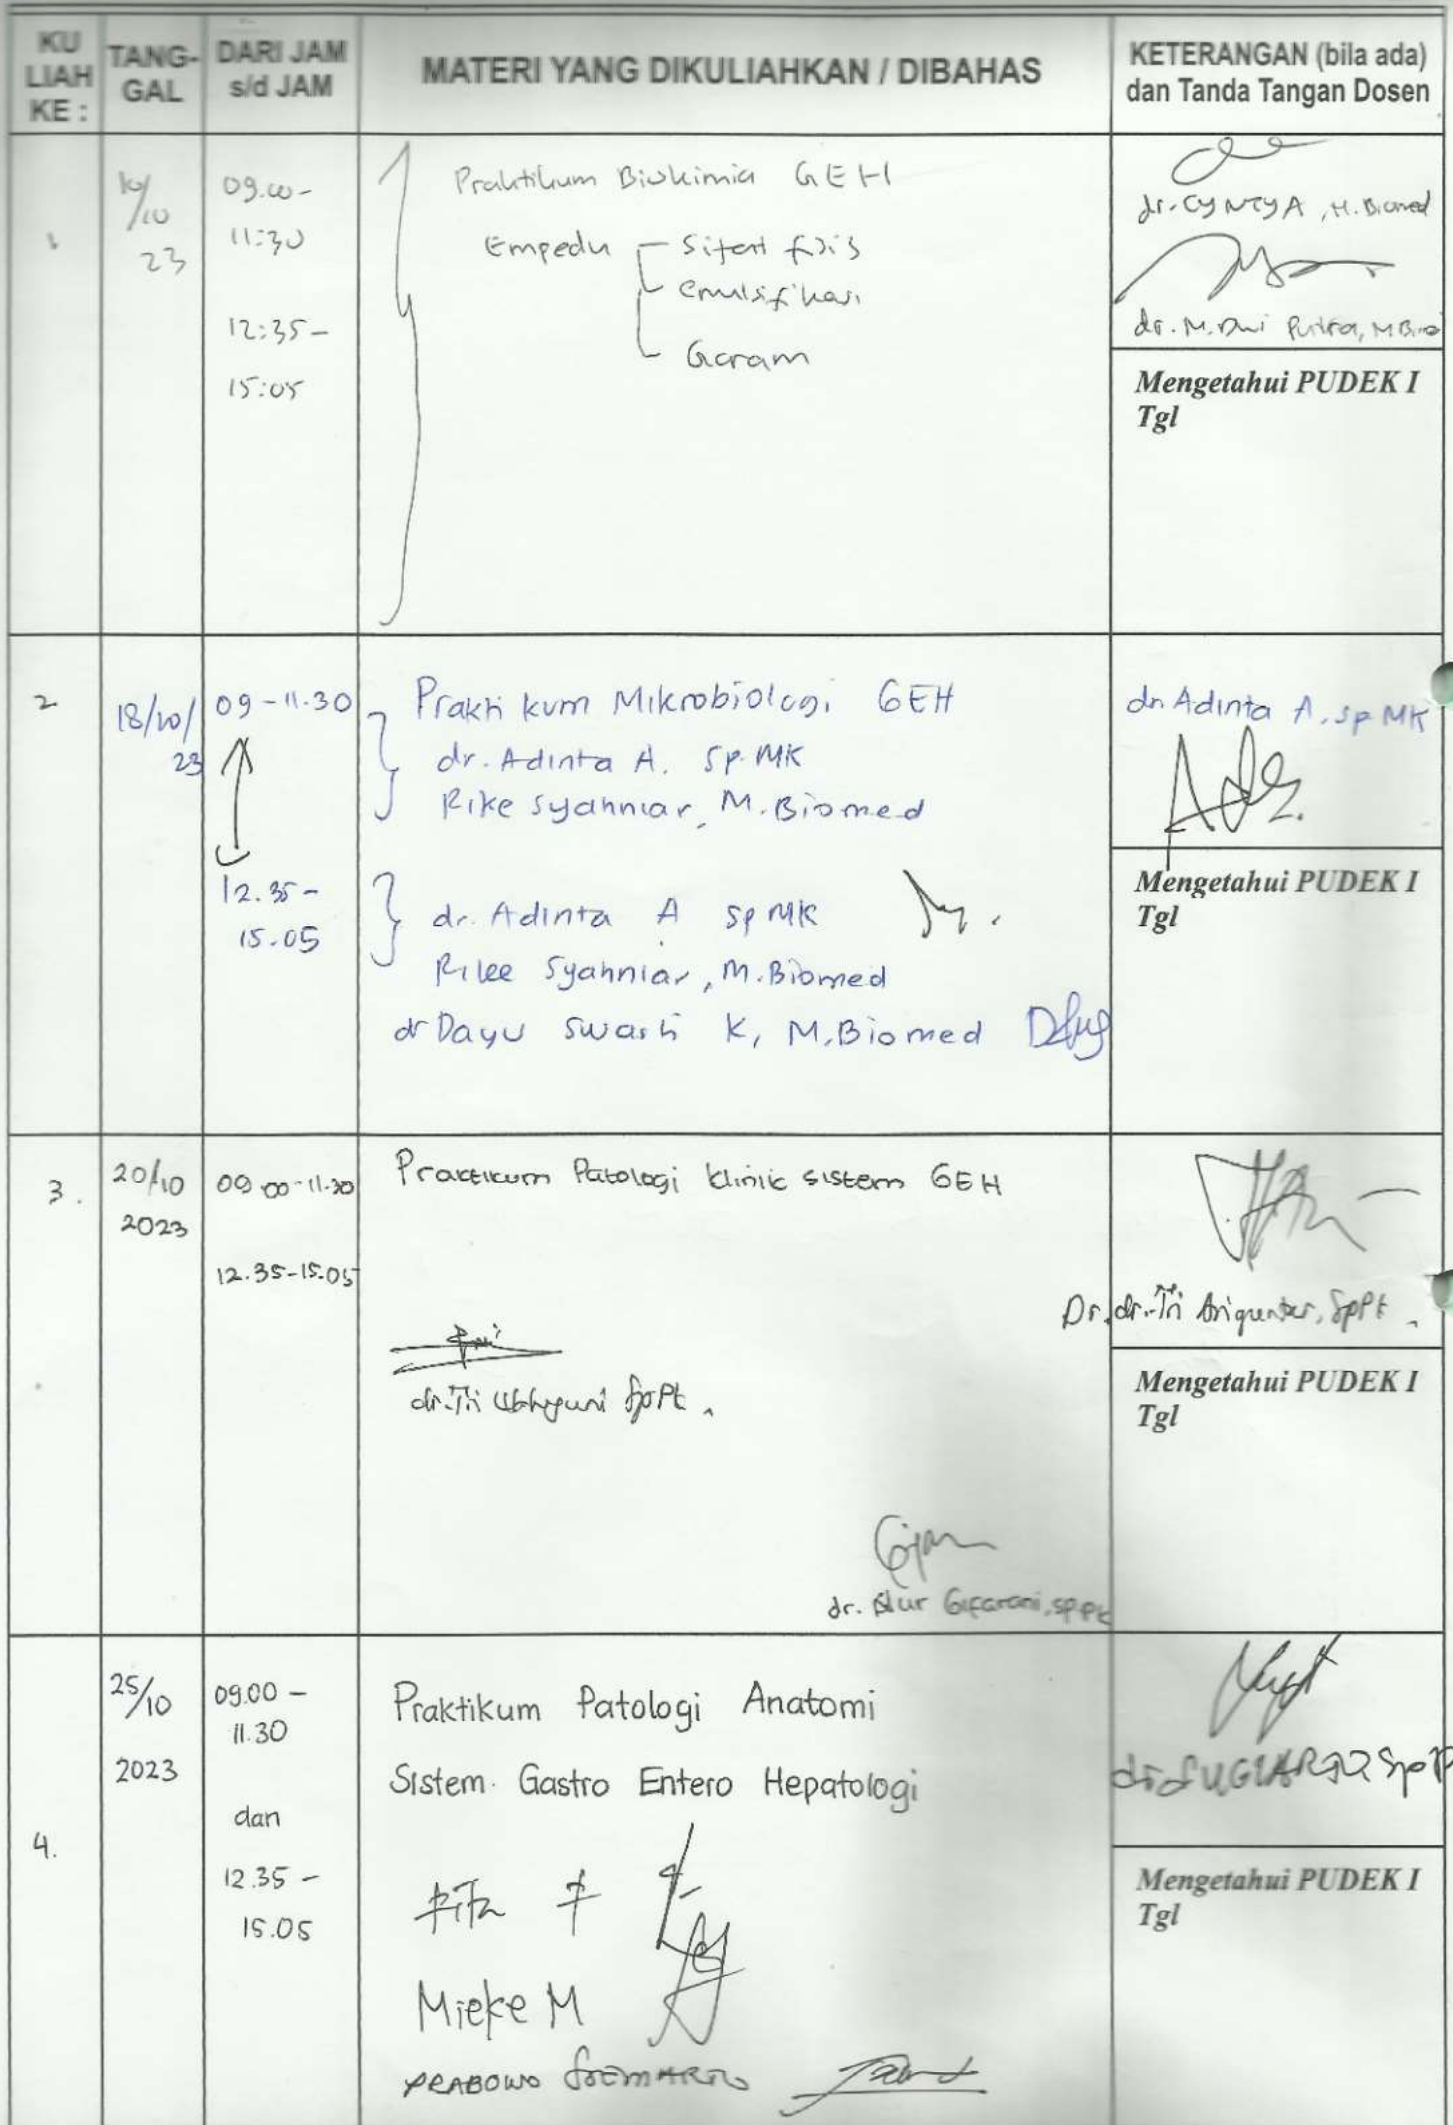 KU LIAH KE :
TANG-GAL
DARI JAM s/d JAM
MATERI YANG DIKULIAHKAN / DIBAHAS
KETERANGAN (bila ada) dan Tanda Tangan Dosen
10
23
09.00-
11:30
12:35-
15:05
Praktikum Biokimia GEH
Empedu
Sifat fisis
emulsifikasi
Garam
dr. CYNTYA, M.Biomed
dr. M. Dwi Putra,
Mengetahui PUDEK I
Tgl
2
18/10/
23
09-11.30
12.35-
15.05
Praktikum Mikrobiologi GEH
dr. Adinta A. Sp.MK
Rike Syahniar, M.Biomed
dr. Adinta A SpMK
Rike Syahniar, M.Biomed
dr Dayu Swasti K, M.Biomed
dr. Adinta A. Sp MK
Mengetahui PUDEK I
Tgl
3.
20/10
2023
09.00-11.30
12.35-15.05
Practicum Patologi klinik sistem GEH
dr. Tri Wahyuni SpPk
dr. Nur Gifarani, SpPk
Dr. dr. Tri
Mengetahui PUDEK I
Tgl
4.
25/10
2023
09.00 -
11.30
dan
12.35 -
15.05
Praktikum Patologi Anatomi
Sistem Gastro Entero Hepatologi
Mieke M
PRABOWO SOEMARTO
dr. SUGIARTO SpPA
Mengetahui PUDEK I
Tgl